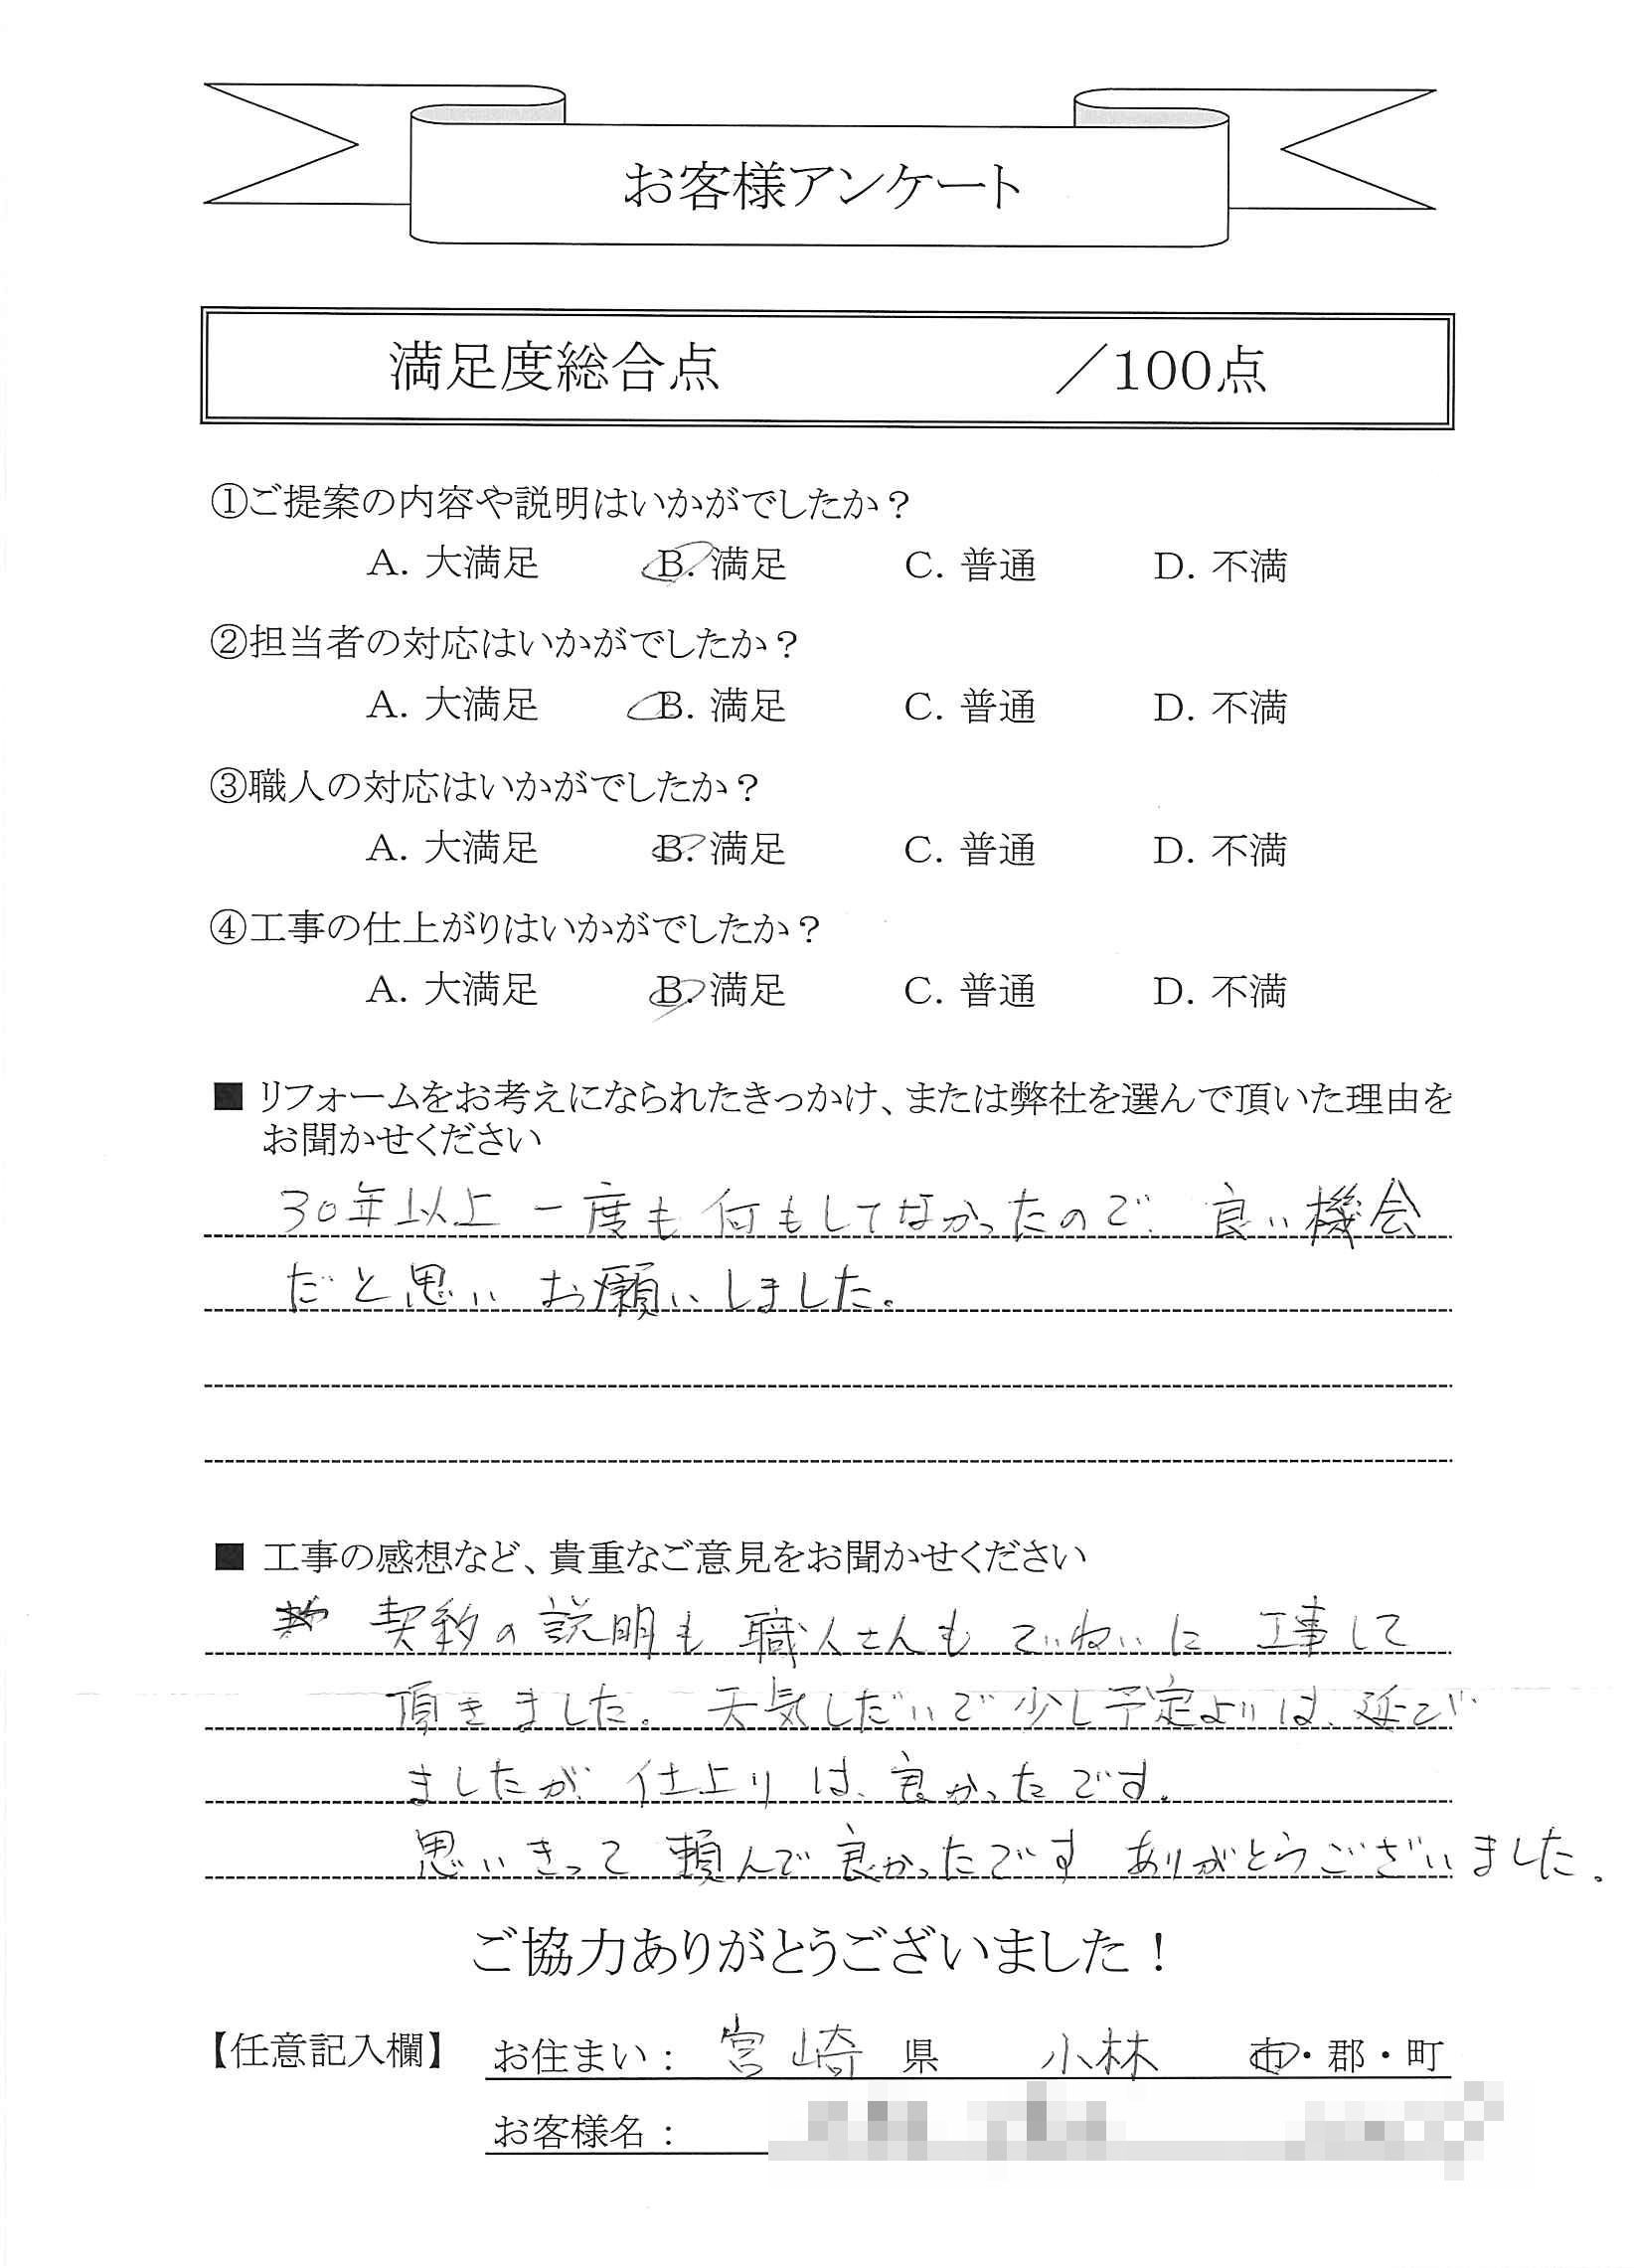 お客様アンケート
満足度総合点 ／100点
①ご提案の内容や説明はいかがでしたか？
A. 大満足 B. 満足 C. 普通 D. 不満
②担当者の対応はいかがでしたか？
A. 大満足 B. 満足 C. 普通 D. 不満
③職人の対応はいかがでしたか？
A. 大満足 B. 満足 C. 普通 D. 不満
④工事の仕上がりはいかがでしたか？
A. 大満足 B. 満足 C. 普通 D. 不満
■ リフォームをお考えになられたきっかけ、または弊社を選んで頂いた理由を
お聞かせください
30年以上 一度も何もしてなかったので、良い機会
だと思い お願いしました。
■ 工事の感想など、貴重なご意見をお聞かせください
契約の説明も 職人さんも ていねいに 工事して
頂きました。天気しだいで少し予定よりは、延び
ましたが、仕上りは、良かったです。
思いきって 頼んで良かったです ありがとうございました。
ご協力ありがとうございました！
【任意記入欄】 お住まい： 宮崎 県 小林 市・郡・町
お客様名：